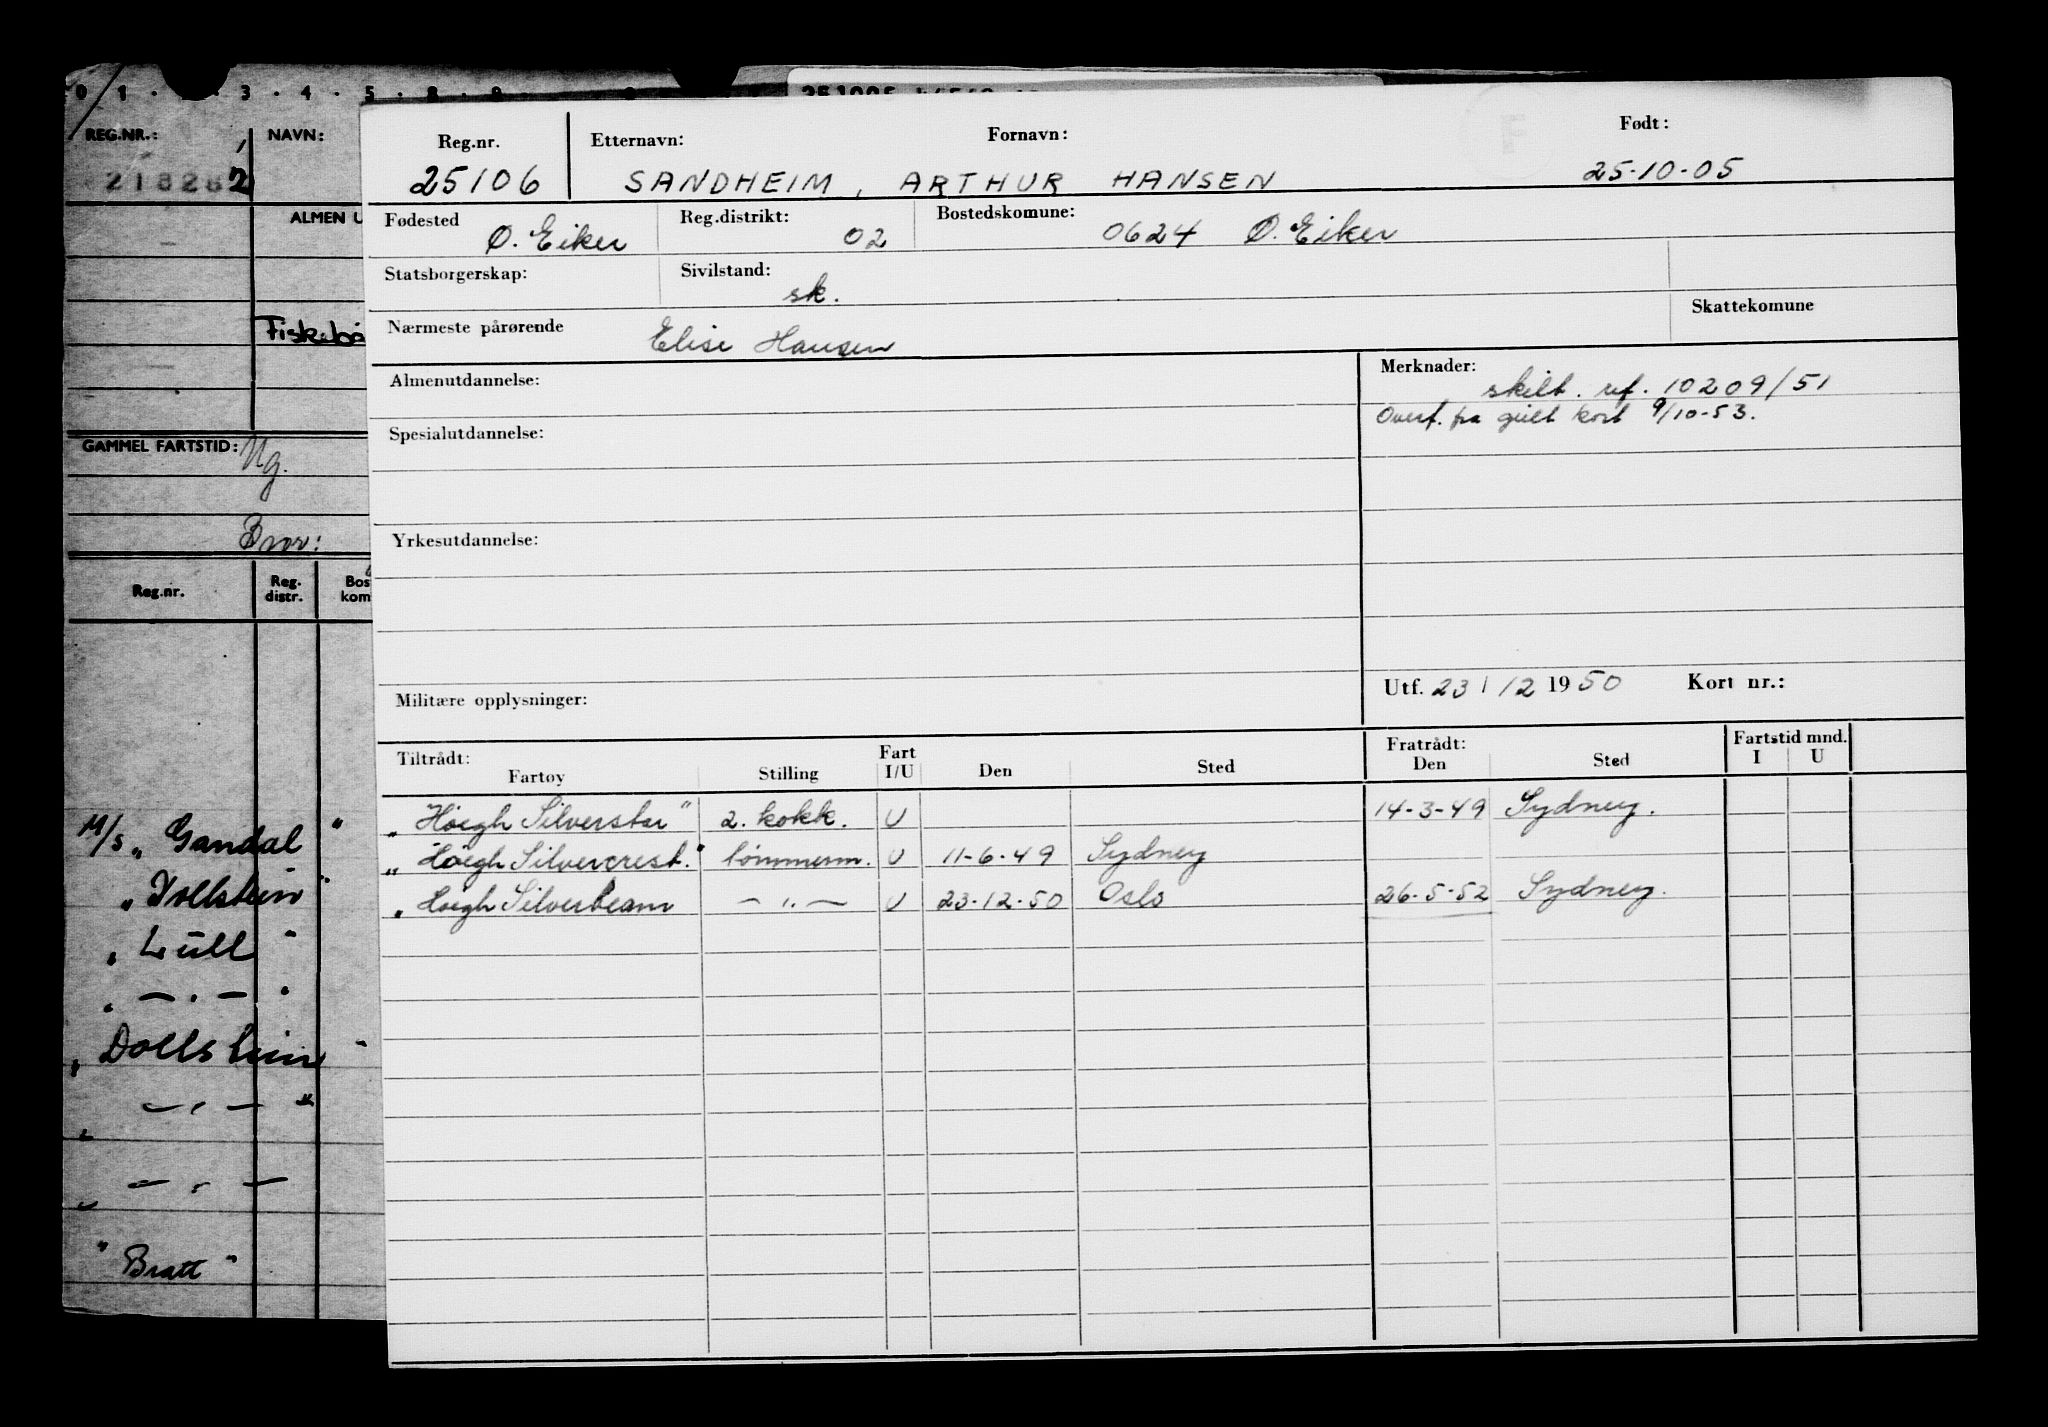 0 1 · · 3 · 4 · 5 · 8 · 9
REG.NR.:
NAVN:
218282
ALMEN U
Fiskebå
GAMMEL FARTSTID:
Ng.
Bror:
Reg.nr.
Reg. distr.
Bos kom
M/s „Gandal"
„Dollstein"
„Lull"
„ — „ — "
„Dollstein"
„ — „ — "
„ — „ —
"Bratt"
Reg.nr. Etternavn: Fornavn: Født:
25106 SANDHEIM, ARTHUR HANSEN 25-10-05
Fødested Ø. Eiker Reg.distrikt: 02 Bostedskomune: 0624 Ø. Eiker
Statsborgerskap: Sivilstand: sk.
Skattekomune
Nærmeste pårørende Elise Hansen
Almenutdannelse: Merknader:
skilt. ref. 10209/51
Overf. fra gult kort 9/10-53.
Spesialutdannelse:
Yrkesutdannelse:
Militære opplysninger: Utf. 23/12 1950 Kort nr.:
Tiltrådt: Fart Fratrådt: Fartstid mnd.
Fartøy Stilling I/U Den Sted Den Sted I U
„Höegh Silverstar" 2. kokk. U 14-3-49 Sydney.
„Höegh Silvercrest." tömmerm. U 11-6-49 Sydney
„Höegh Silverbeam — „ — U 23-12-50 Oslo 26-5-52 Sydney.